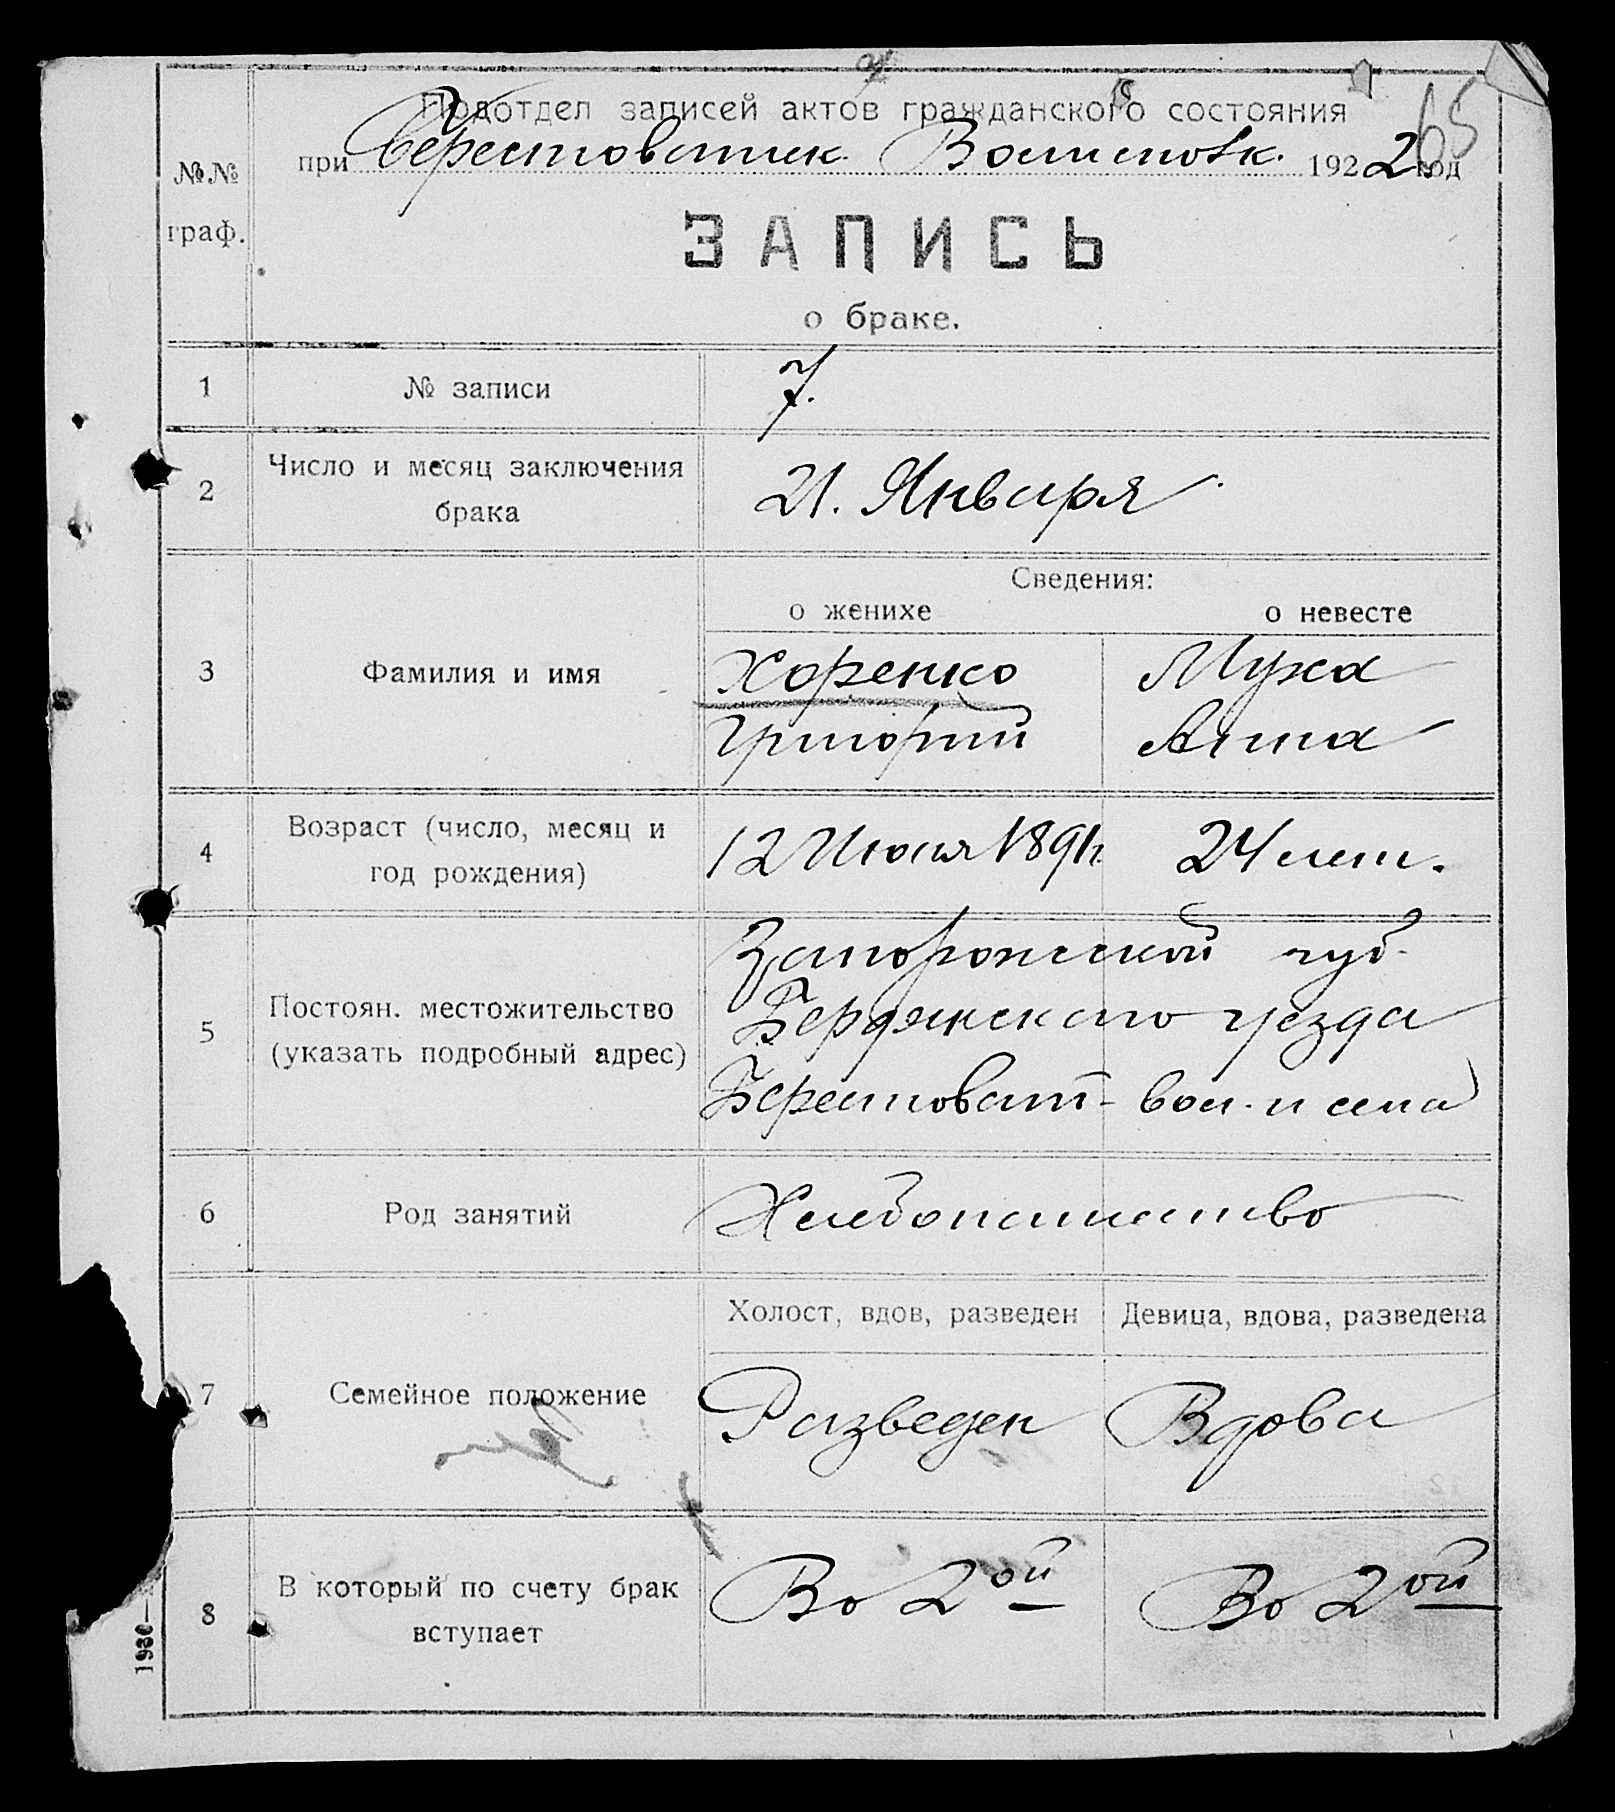 65
Подотдел записей актов гражданского состояния
при Берестоватск. Волисполк. 1922 год
№№ граф.
ЗАПИСЬ
о браке.
1 № записи 7.
2 Число и месяц заключения брака 21. Января
Сведения:
о женихе о невесте
3 Фамилия и имя Хоренко Муха
Григорий Анна
4 Возраст (число, месяц и год рождения) 12 Июля 1891г. 24 лет.
5 Постоян. местожительство (указать подробный адрес) Запорожской губ.
Бердянского уезда
Берестоват- вол. и села
6 Род занятий Хлебопашество
Холост, вдов, разведен Девица, вдова, разведена
7 Семейное положение Разведен Вдова
8 В который по счету брак вступает Во 2ой Во 2ой